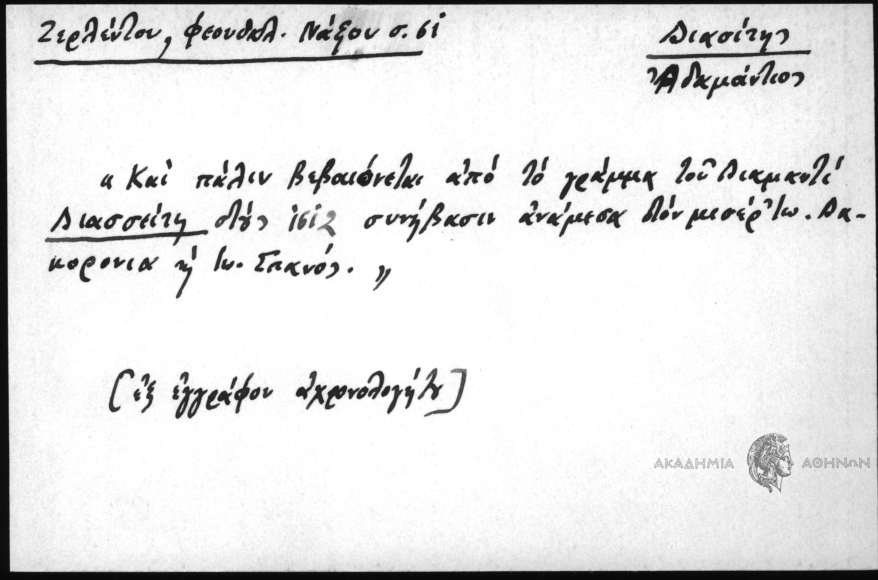 Ζερλέντου, φεουδαλ. Νάξου σ. 61
Διασίτης
Ἀδαμάντιος
«Καὶ πάλιν βεβαιώνεται ἀπό τό γράμμα τοῦ Διαμαντί
Διασσείτη στούς 1612 συνήβασιν ἀνάμεσα στόν μισέρ Ἰω. Δα-
κορονια ἠ Ἰω. Σπανός.»
[ἐξ ἐγγράφου ἀχρονολογήτου]
ΑΚΑΔΗΜΙΑ ΑΘΗΝΩΝ